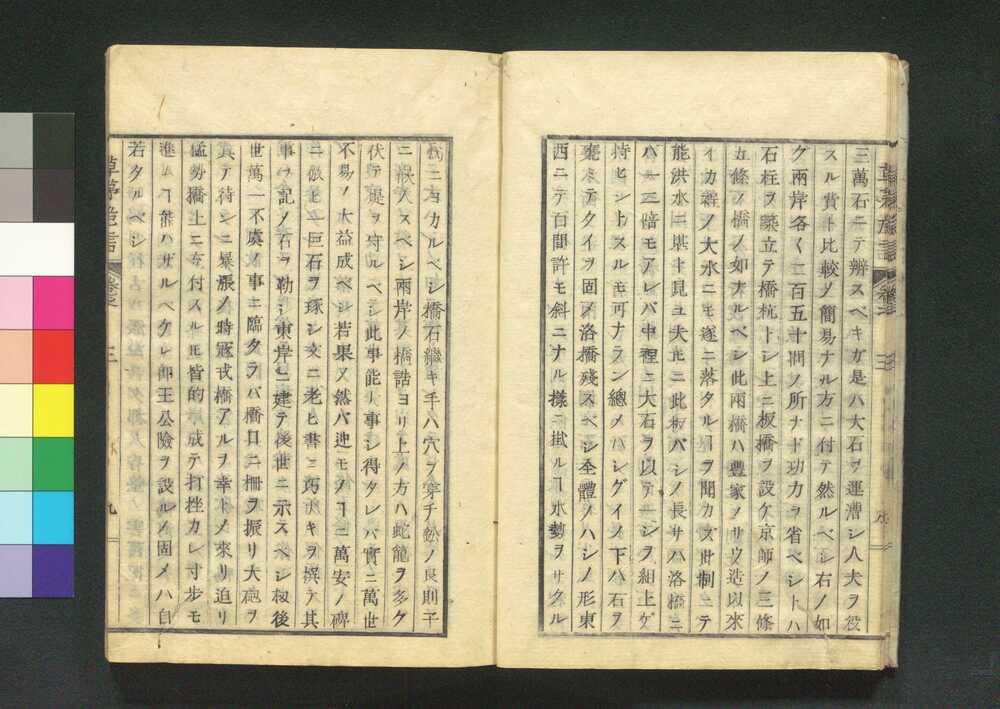 三萬石ニテ辨スベキガ是ハ大石ヲ運漕シ人夫ヲ役
スル費ト比較メ簡易ナル方ニ付テ然ルベシ右ノ如
ク兩岸各〻二百五十間ノ所ナド功力ヲ省ベシトハ
石柱ヲ築立テ橋杭トシ上ニ板橋ヲ設ケ京師ノ三條
五條ノ橋ノ如ナルベシ此兩橋ハ豐家ノ造以來
イカ樣ノ大水ニモ遂ニ落タルヿヲ聞カズ此制ニテ
能洪水ニ堪ト見ユ大ニ此板バシノ長サハ洛橋ニ
ハ一三倍モアレバ中程ニ大石ヲ以テ一シヲ組上ゲ
持ヒシトスルモ可ナラン總メハシグイノ下ハ石ヲ
テタイヲ固メ洛橋殘スベシ全體ノハシノ形東
西ニテ百間許モ斜ニナル樣ニ拭ルヿ水勢ヲサクル
ニヨカルベシ橋石繼キ手ハ穴ヲ穿チノ長則子
ニ入スベシ兩岸ノ橋詰ヨリ上ノ方ハ蛇籠ヲ多ク
伏テ堤ヲ守ルベシ此事能大事シ得タレバ實ニ萬世
不易ノ大益成ベシ若果メ然バ迚モノヿニ萬安ノ碑
ニ倣ヒ一巨石ヲ琢シ文ニ老ヒ書ニ巧ヲ撰テ其
事ヲ記メ石ヲ勒シ東岸ニ建テ後世ニ示スベシ扨後
世萬一不虞ノ事ニ臨タラバ橋口ニ柵ヲ振リ大砲ヲ
眞テ待シニ暴漲ノ時冦戎橋アルヲ幸トメ來リ迫リ
猛勢橋上ニ奇付スルモ皆的ト成テ打挫カレ寸歩モ
進ムヿ能ハザルベケレ即王公險ヲ設ルメ固メハ自
若タルベシ
草茅危言
三
九